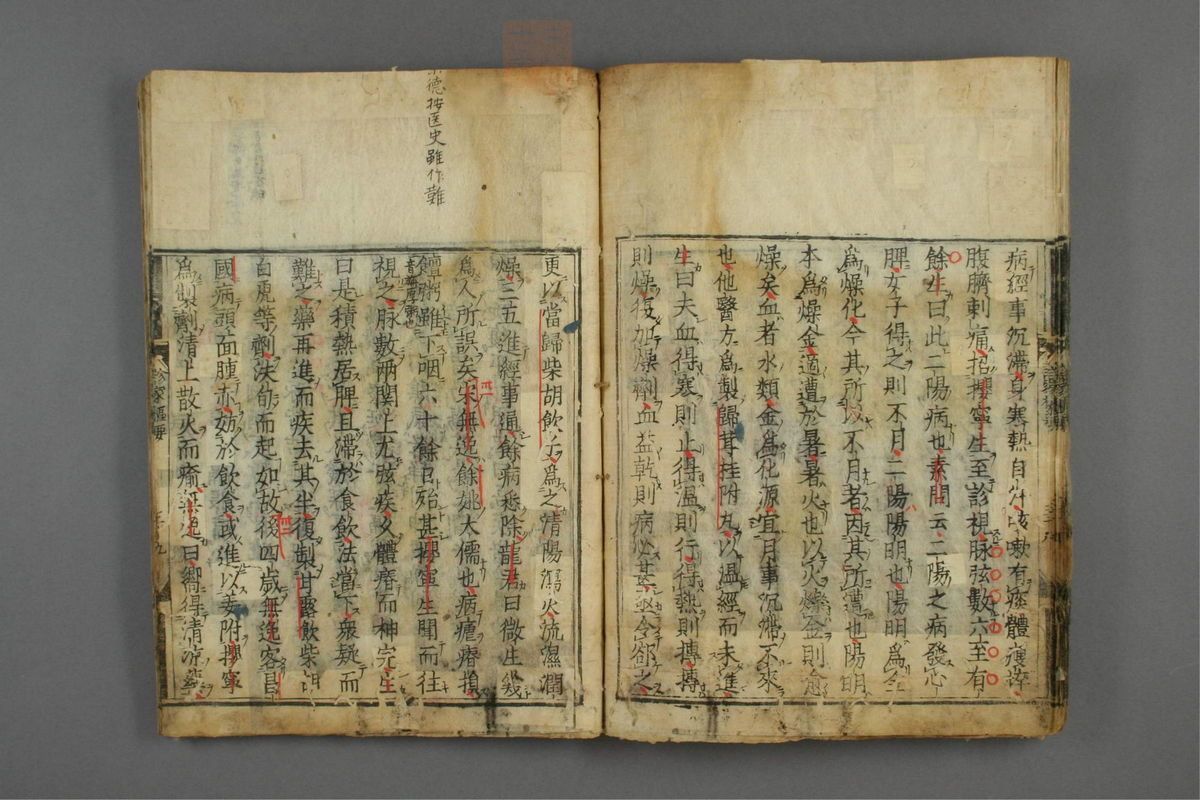 病經事沉滯身寒熱自汗咳嗽有痰體癯瘁
腹臍刺痛招攖寧生至診視脉弦數六至有
餘生曰此二陽病也素問云二陽之病發心
脾女子得之則不月二陽陽明也陽明爲金
爲燥化今其所以不月者因其所遭也陽明
本爲燥金適遭於暑暑火也以火爍金則愈
燥矣血者水類金爲化源宜月事沉滯不來
也他醫方爲製歸茸桂附丸以温經而未進
生曰夫血得寒則止得温則行得熱則摶摶
則燥復加燥劑血益乾則病必甚亟令卻之
更以當歸柴胡飲子爲之清陽瀉火流濕潤
燥三五進經事通餘病悉除龍君曰微生幾
爲人所誤矣宋無逸餘姚太儒也病瘧瘠損
饘粥雖下咽六十餘日殆甚攖寧生聞而往
視之脉數兩關上尤弦疾久體瘠而神完生
曰是積熱居脾且滯於食飲法當下衆疑而
難之藥再進而疾去其半復製甘露飲柴胡
白虎等劑浹旬而起如故後四歲無逸客昌
國病頭面腫赤妨於飲食或進以姜附攖寧
爲製劑清上散火而瘉無逸曰嚮得清凉
診家樞要
德按医史雖作難